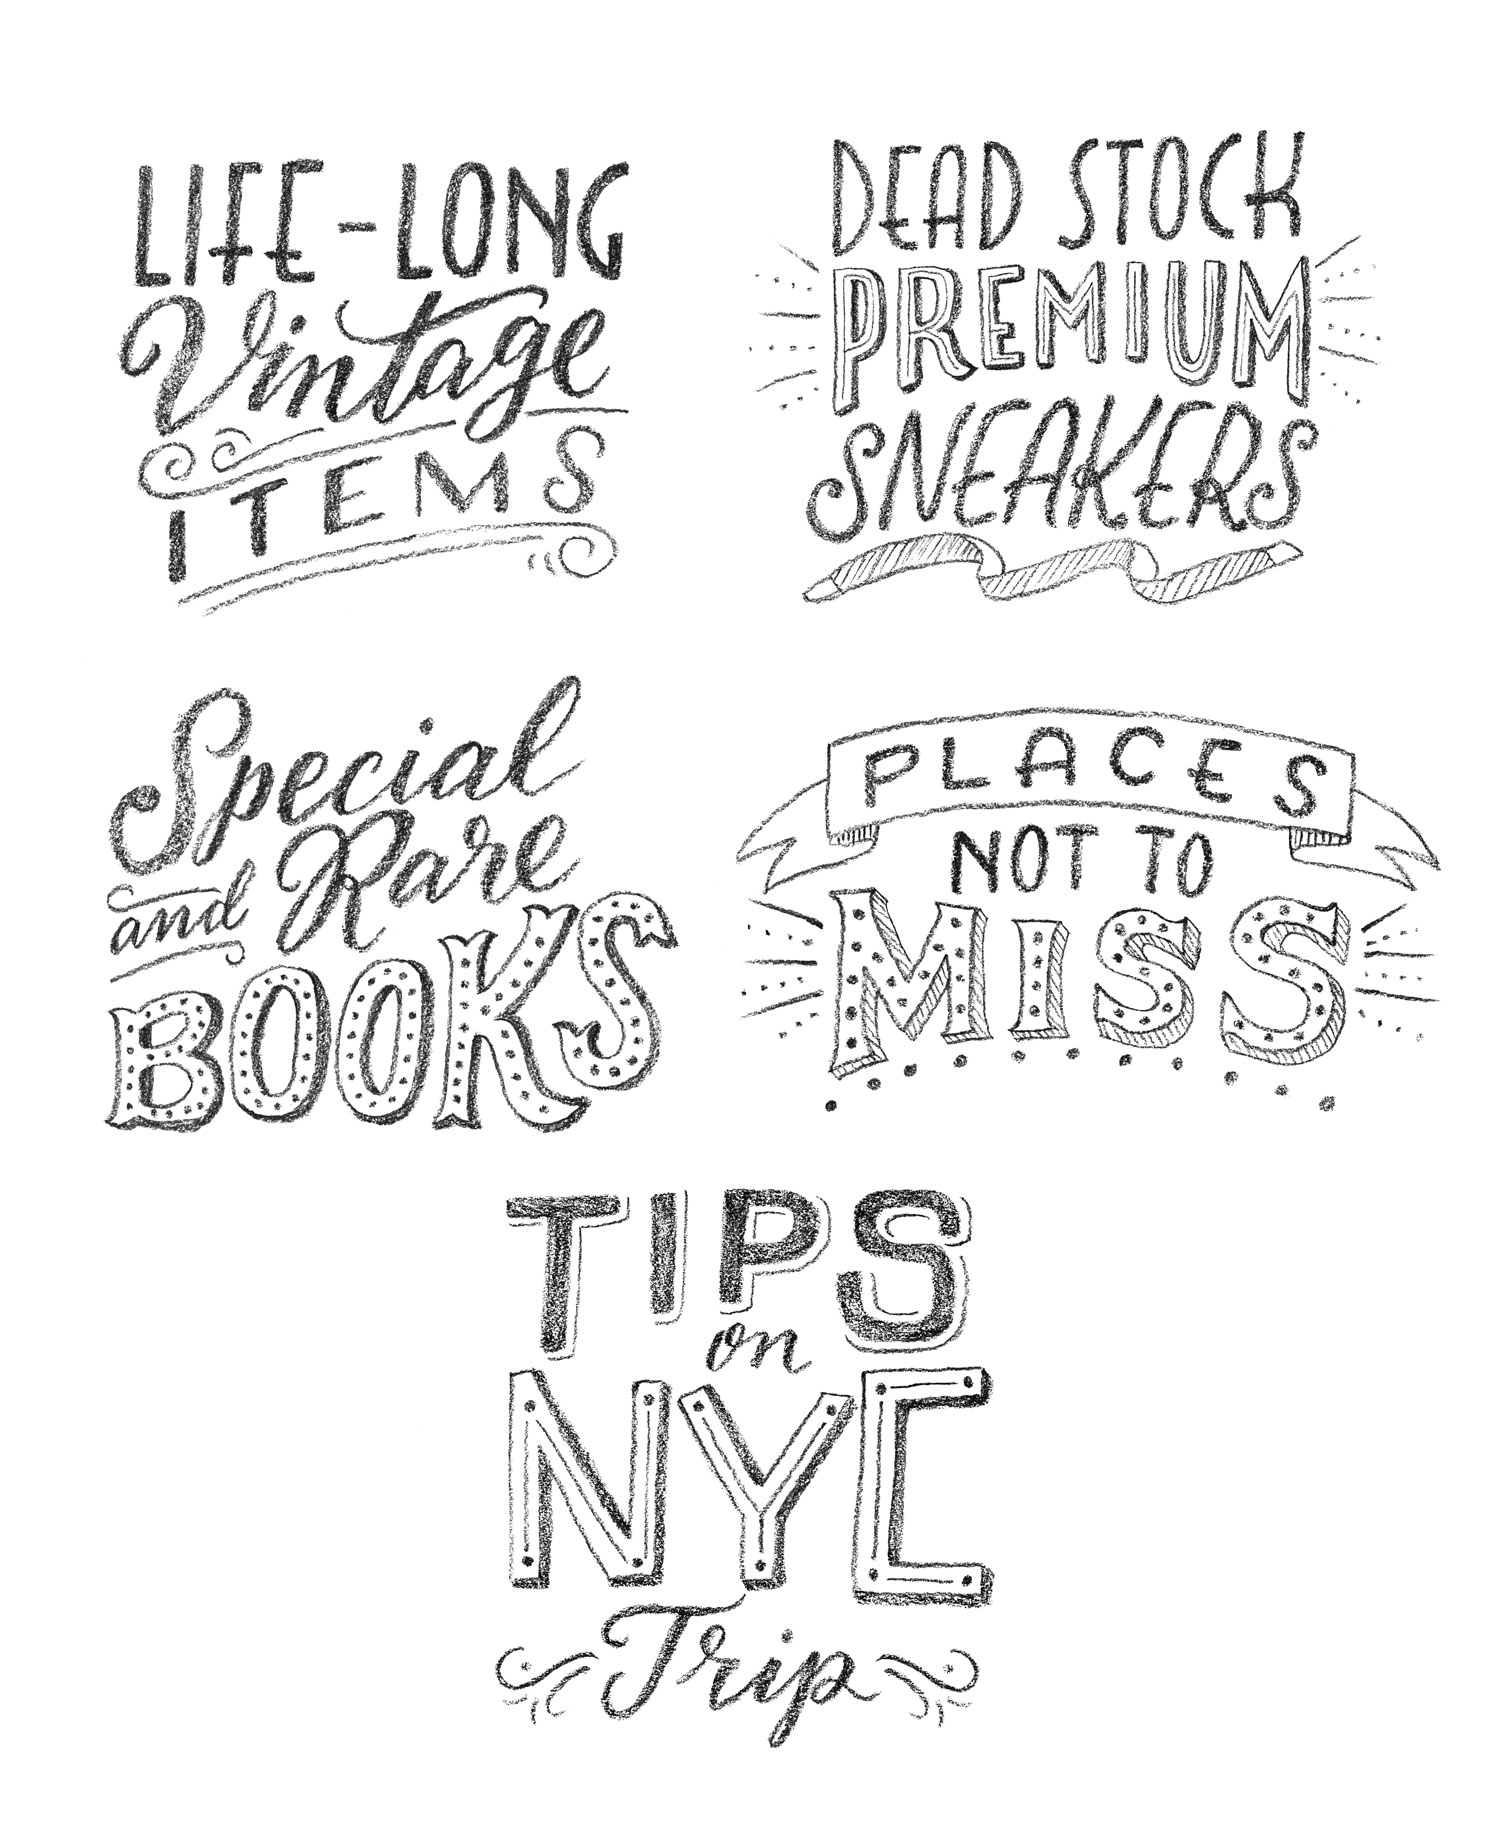 LIFE-LONG
Vintage
ITEMS
DEAD STOCK
PREMIUM
SNEAKERS
Special
and Rare
BOOKS
PLACES
NOT TO
MISS
TIPS
on
NYC
Trip